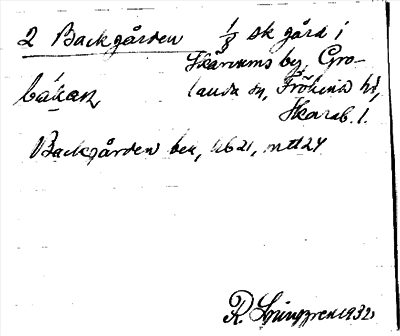 2 Backgården 1/8 sk gård i
Skärvums by, Gro-
båkan landa sn, Frökinds hd,
Skarab. l.
Backgården bek, hb21, mtl 24
R. Ljunggren 1932